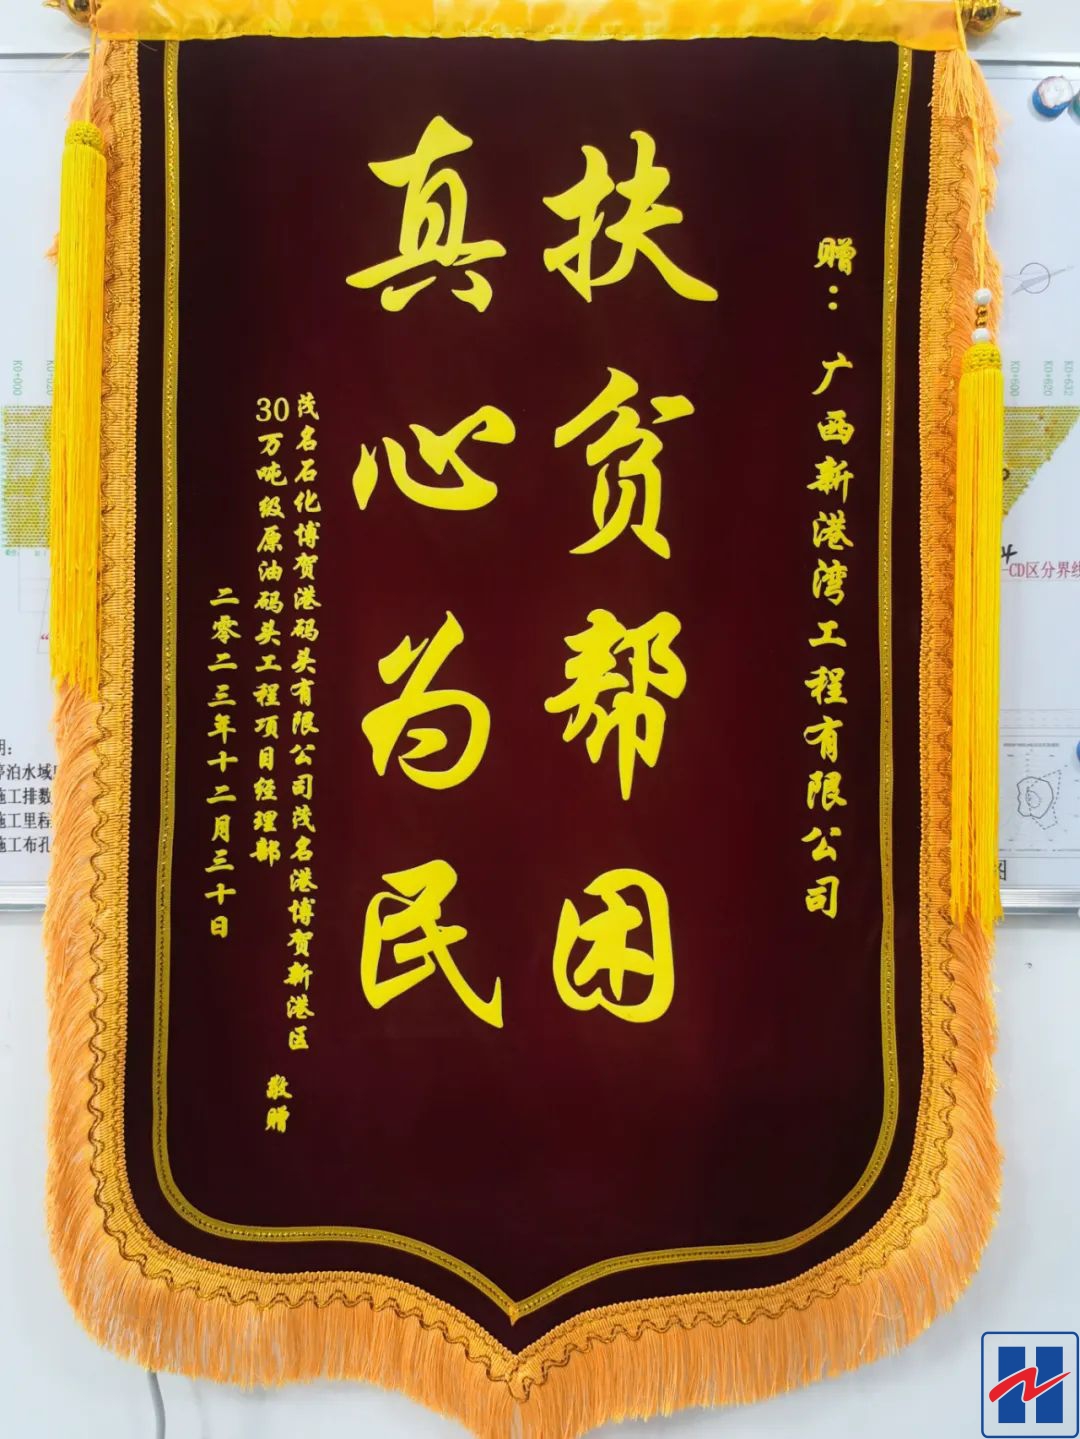 赠：广西新港湾工程有限公司
扶贫帮困
真心为民
茂名石化博贺港码头有限公司茂名港博贺新港区
30万吨级原油码头工程项目经理部
敬赠
二零二三年十二月三十日
K0+000
K0+600
K0+620
K0+632
CD区分界线
停泊水域
施工排数
施工里程
施工布孔
图